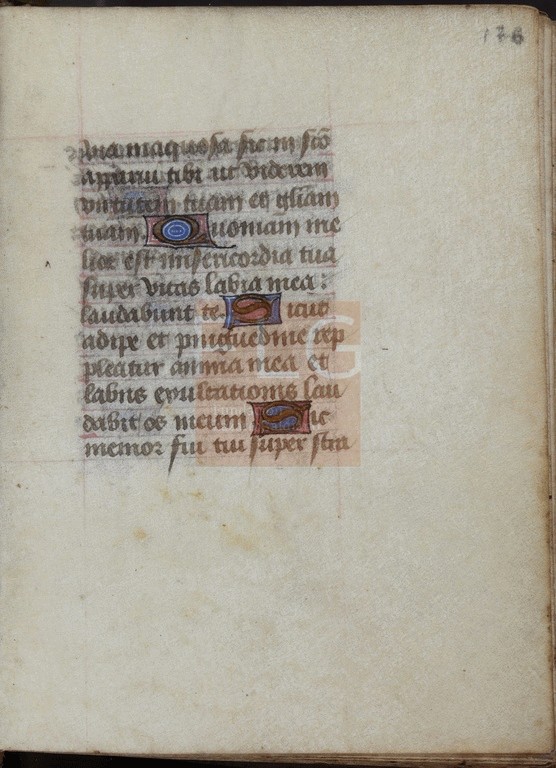 176
uia inaquosa sic in scō
apparui tibi ut viderem
virtutem tuam et gliam
tuam. Quoniam me
lior est misericordia tua
super vitas labia mea:
laudabunt te. Sicut
adipe et pinguedine rep
pleatur anima mea et
labiis exultationis lau
dabit os meum Sic
memor fui tui super stra
LG